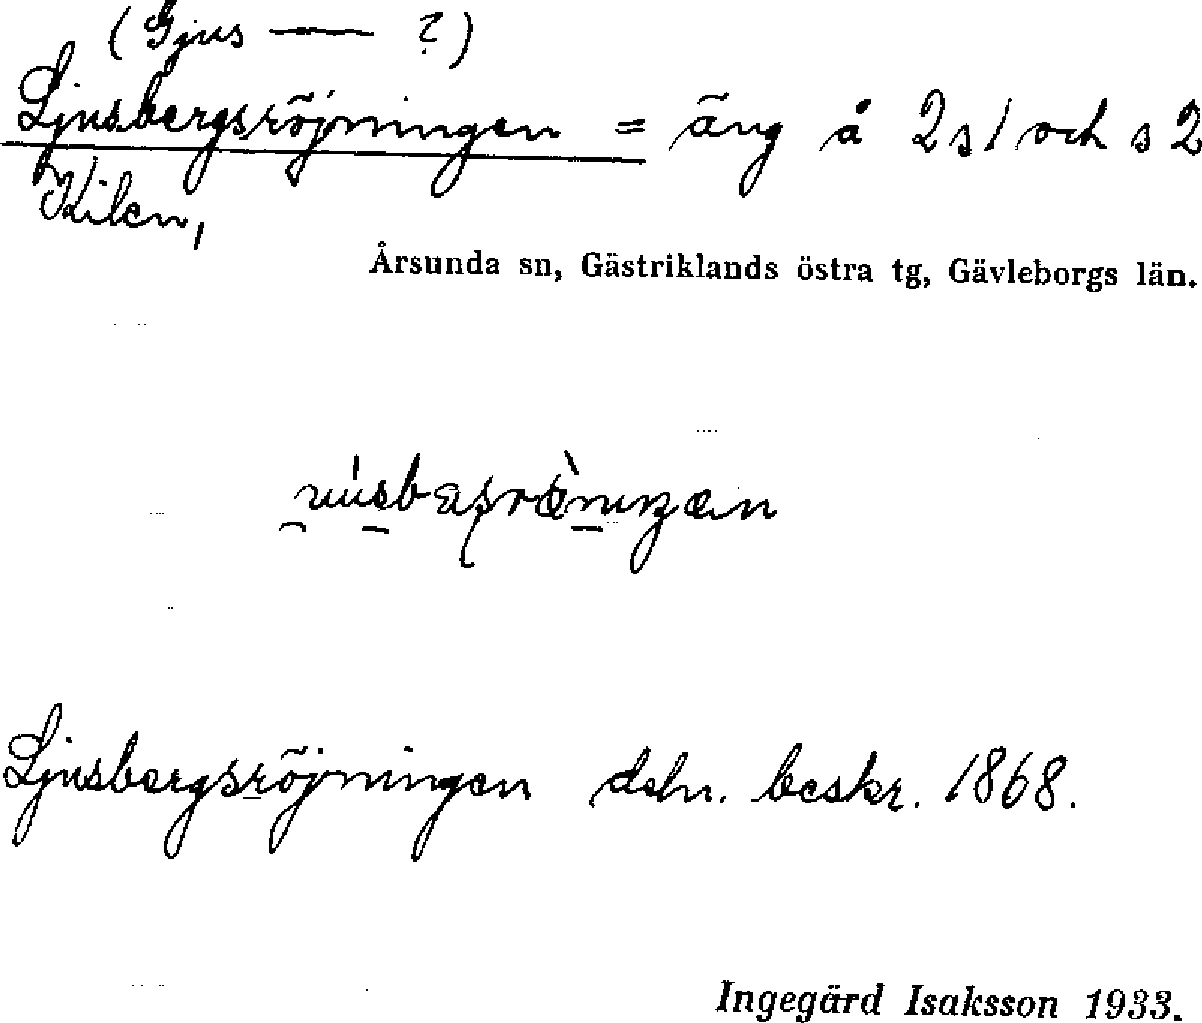 (Gjus — ?)
Ljusbergsröjningen = äng å 2 s 1 och s 2
Kilen,
Årsunda sn, Gästriklands östra tg, Gävleborgs län.
Ljusbergsröjningen deln. beskr. 1868.
Ingegärd Isaksson 1933.